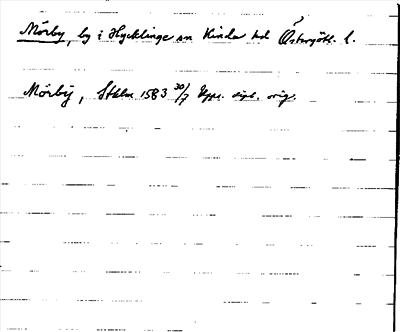 Mörby, by i Hycklinge sn Kinda hd Östergötl. l.
Mörby, Sthlm 1583 30/7 Upps. dipl. orig.